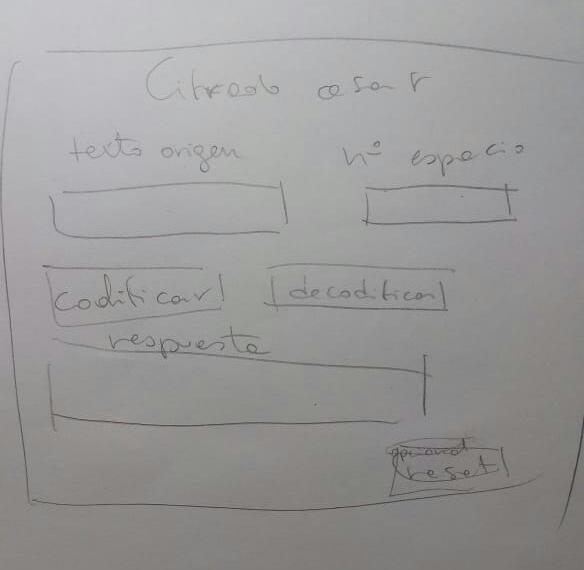 Cifrado cesar
texto origen
nº espacio
codificar
decodificar
respuesta
opcional
reset